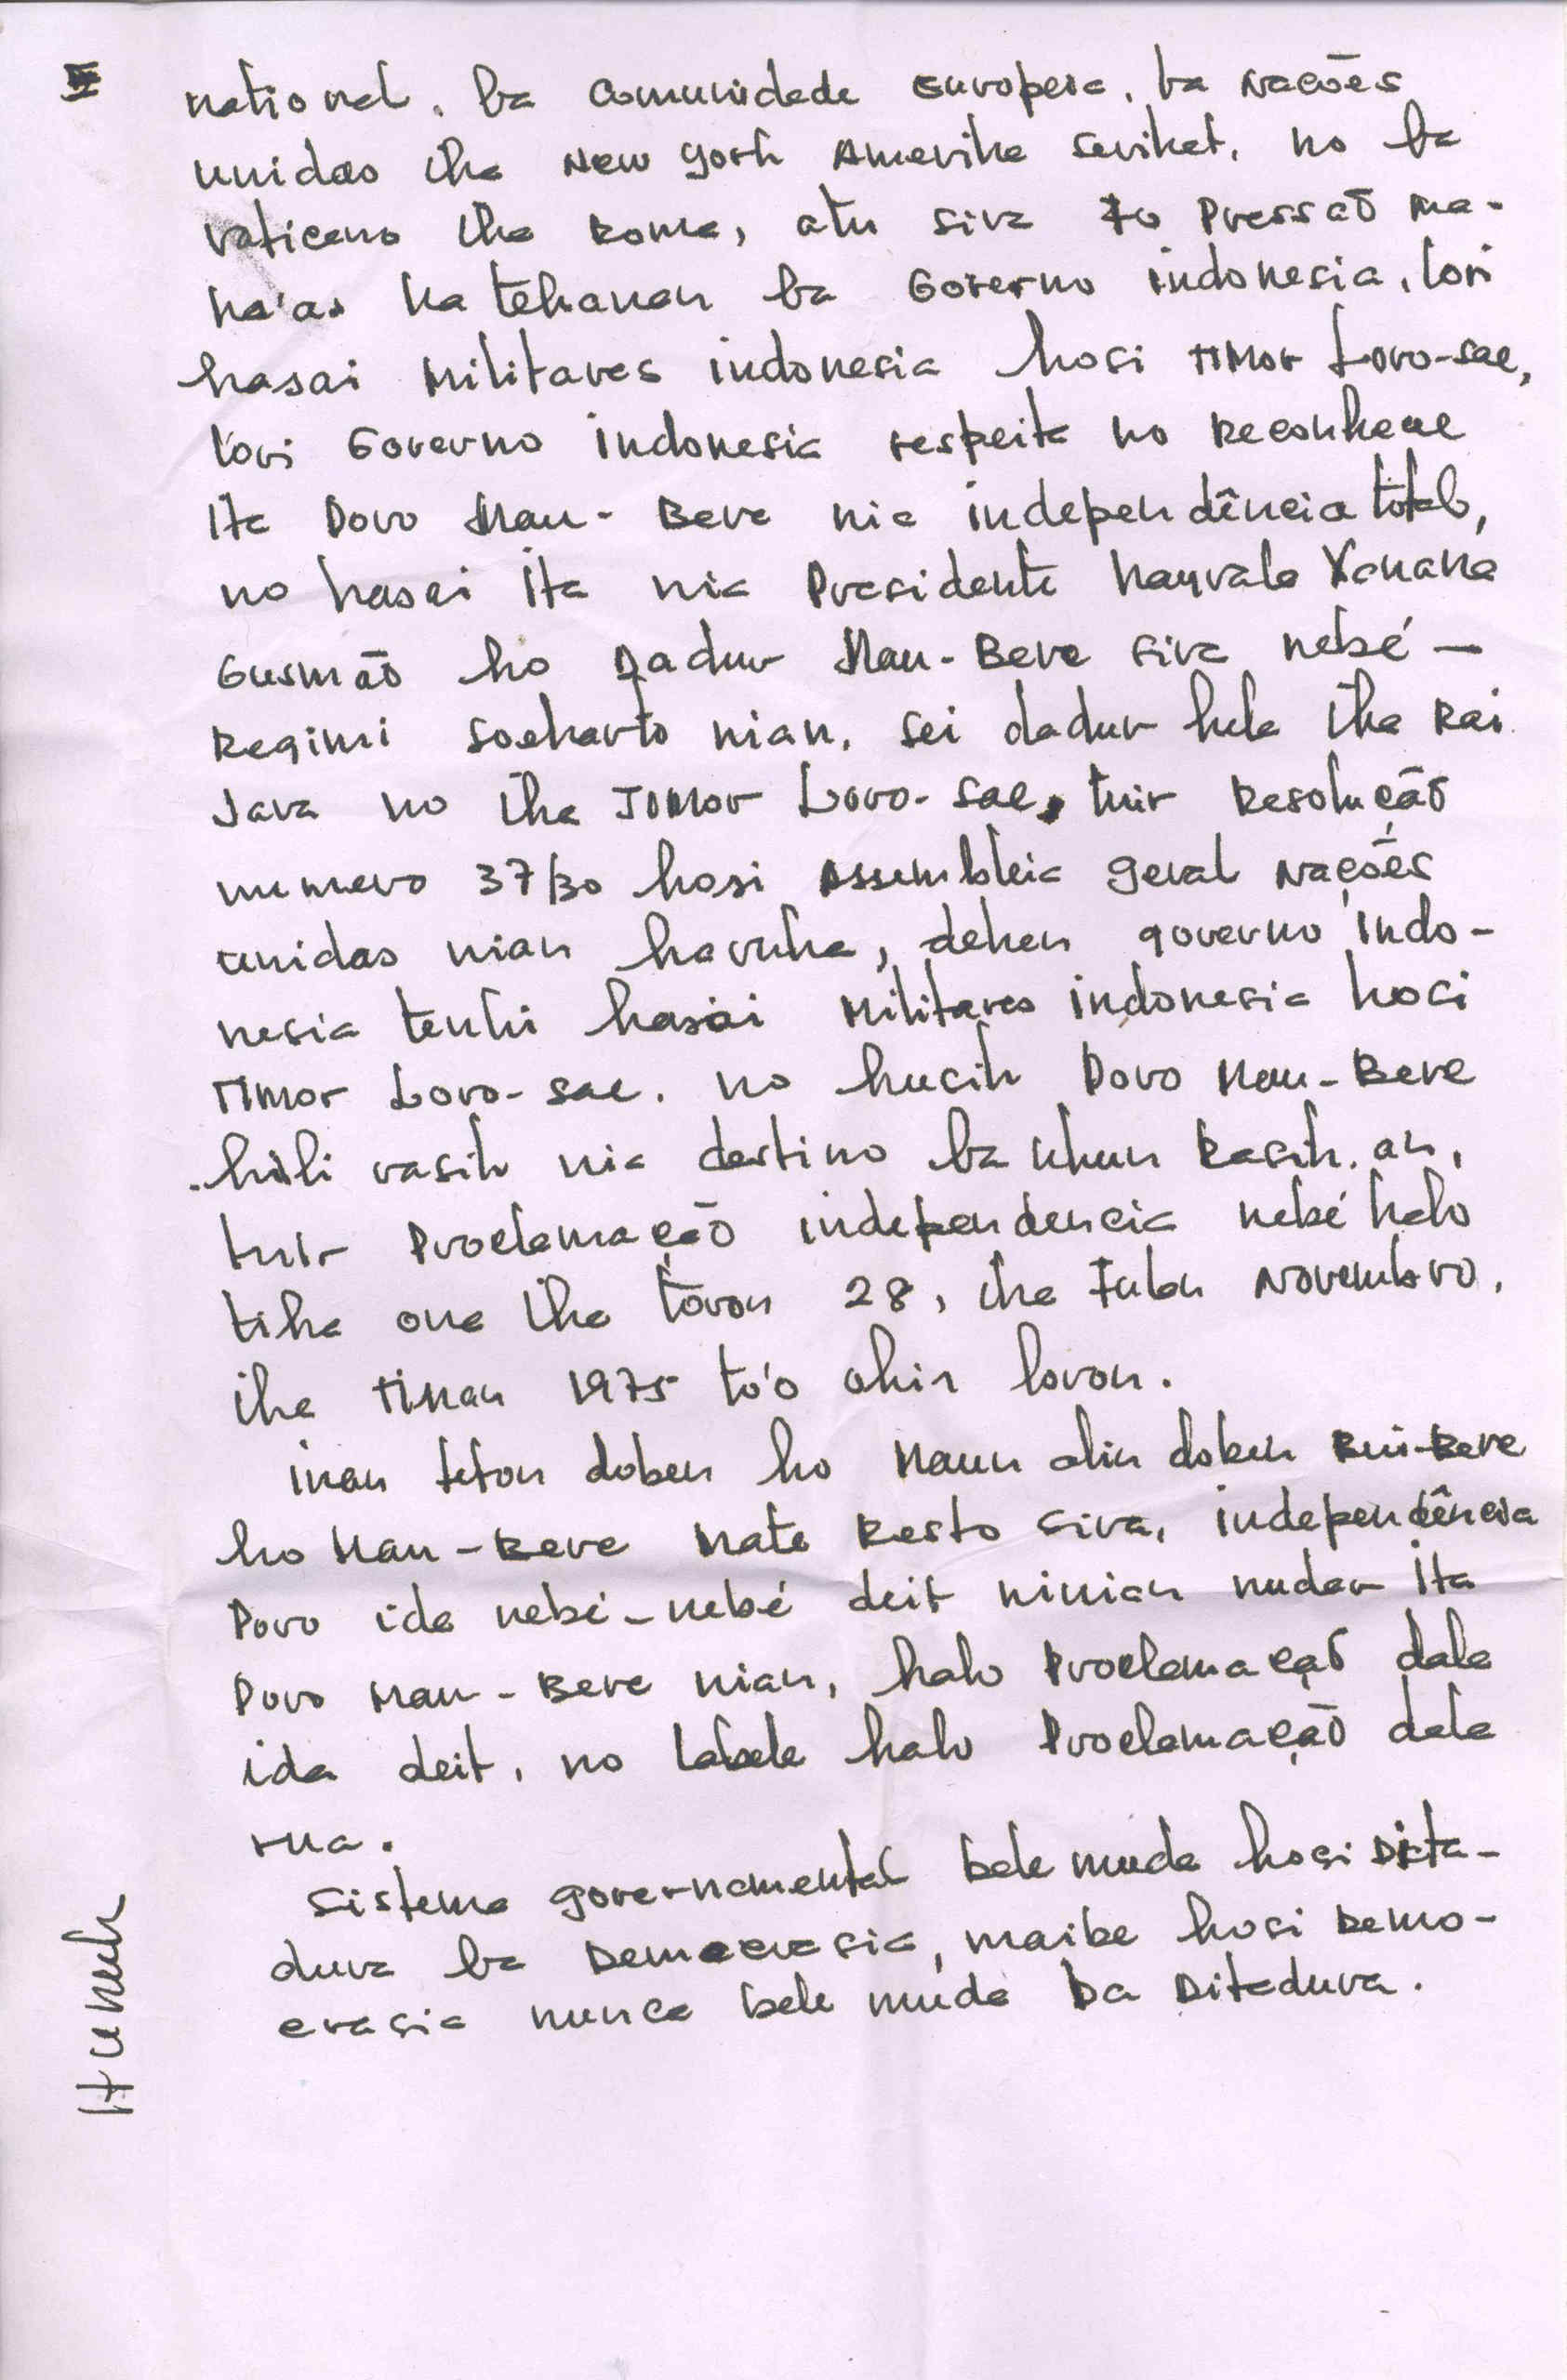 national, ba Comunidade Europeia, ba Nações
unidas iha New York Amerika serikat, no ba
Vaticano iha Roma, atu sira fo Pressaõ ma-
ka'as ka tehanan ba Governo indonesia, lori
hasai Militares indonesia hosi TiMor Loro-sae,
lori Governo indonesia respeita no Reconhece
ita Povo Mau-Bere nia independência total,
no hasai ita nia Presidente Kayrala Xanana
Gusmaõ ho Dadur Mau-Bere sira nebé -
Regimi Soeharto nian, sei dadur hela iha Rai
Java no iha TiMor Loro-sae, tuir Resoluçaõ
numero 37/30 hosi Assembleia geral Nações
unidas nian haruka, dehan governo indo-
nesia tenki hasai Militares indonesia hosi
TiMor Loro-sae. no husik Povo Mau-Bere
hili rasik nia destino ba ukun Rasik. an,
tuir Proclamaçaõ independencia nebé halo
tiha ona iha loron 28, iha Fulan Novembro,
iha tinan 1975 to'o ohin loron.
inan feton doben ho Maun alin doben Bui-Bere
ho Mau-Bere Mate Resto sira, independência
Povo ida nebé-nebé deit ninian nudar ita
Povo Mau-Bere nian, halo Proclamaçaõ dala
ida deit, no labele halo Proclamaçaõ dala
rua.
Sistema governamental bele muda hosi Dita-
dura ba Democrasia, maibe hosi Demo-
crasia nunca bele muda ba Ditadura.